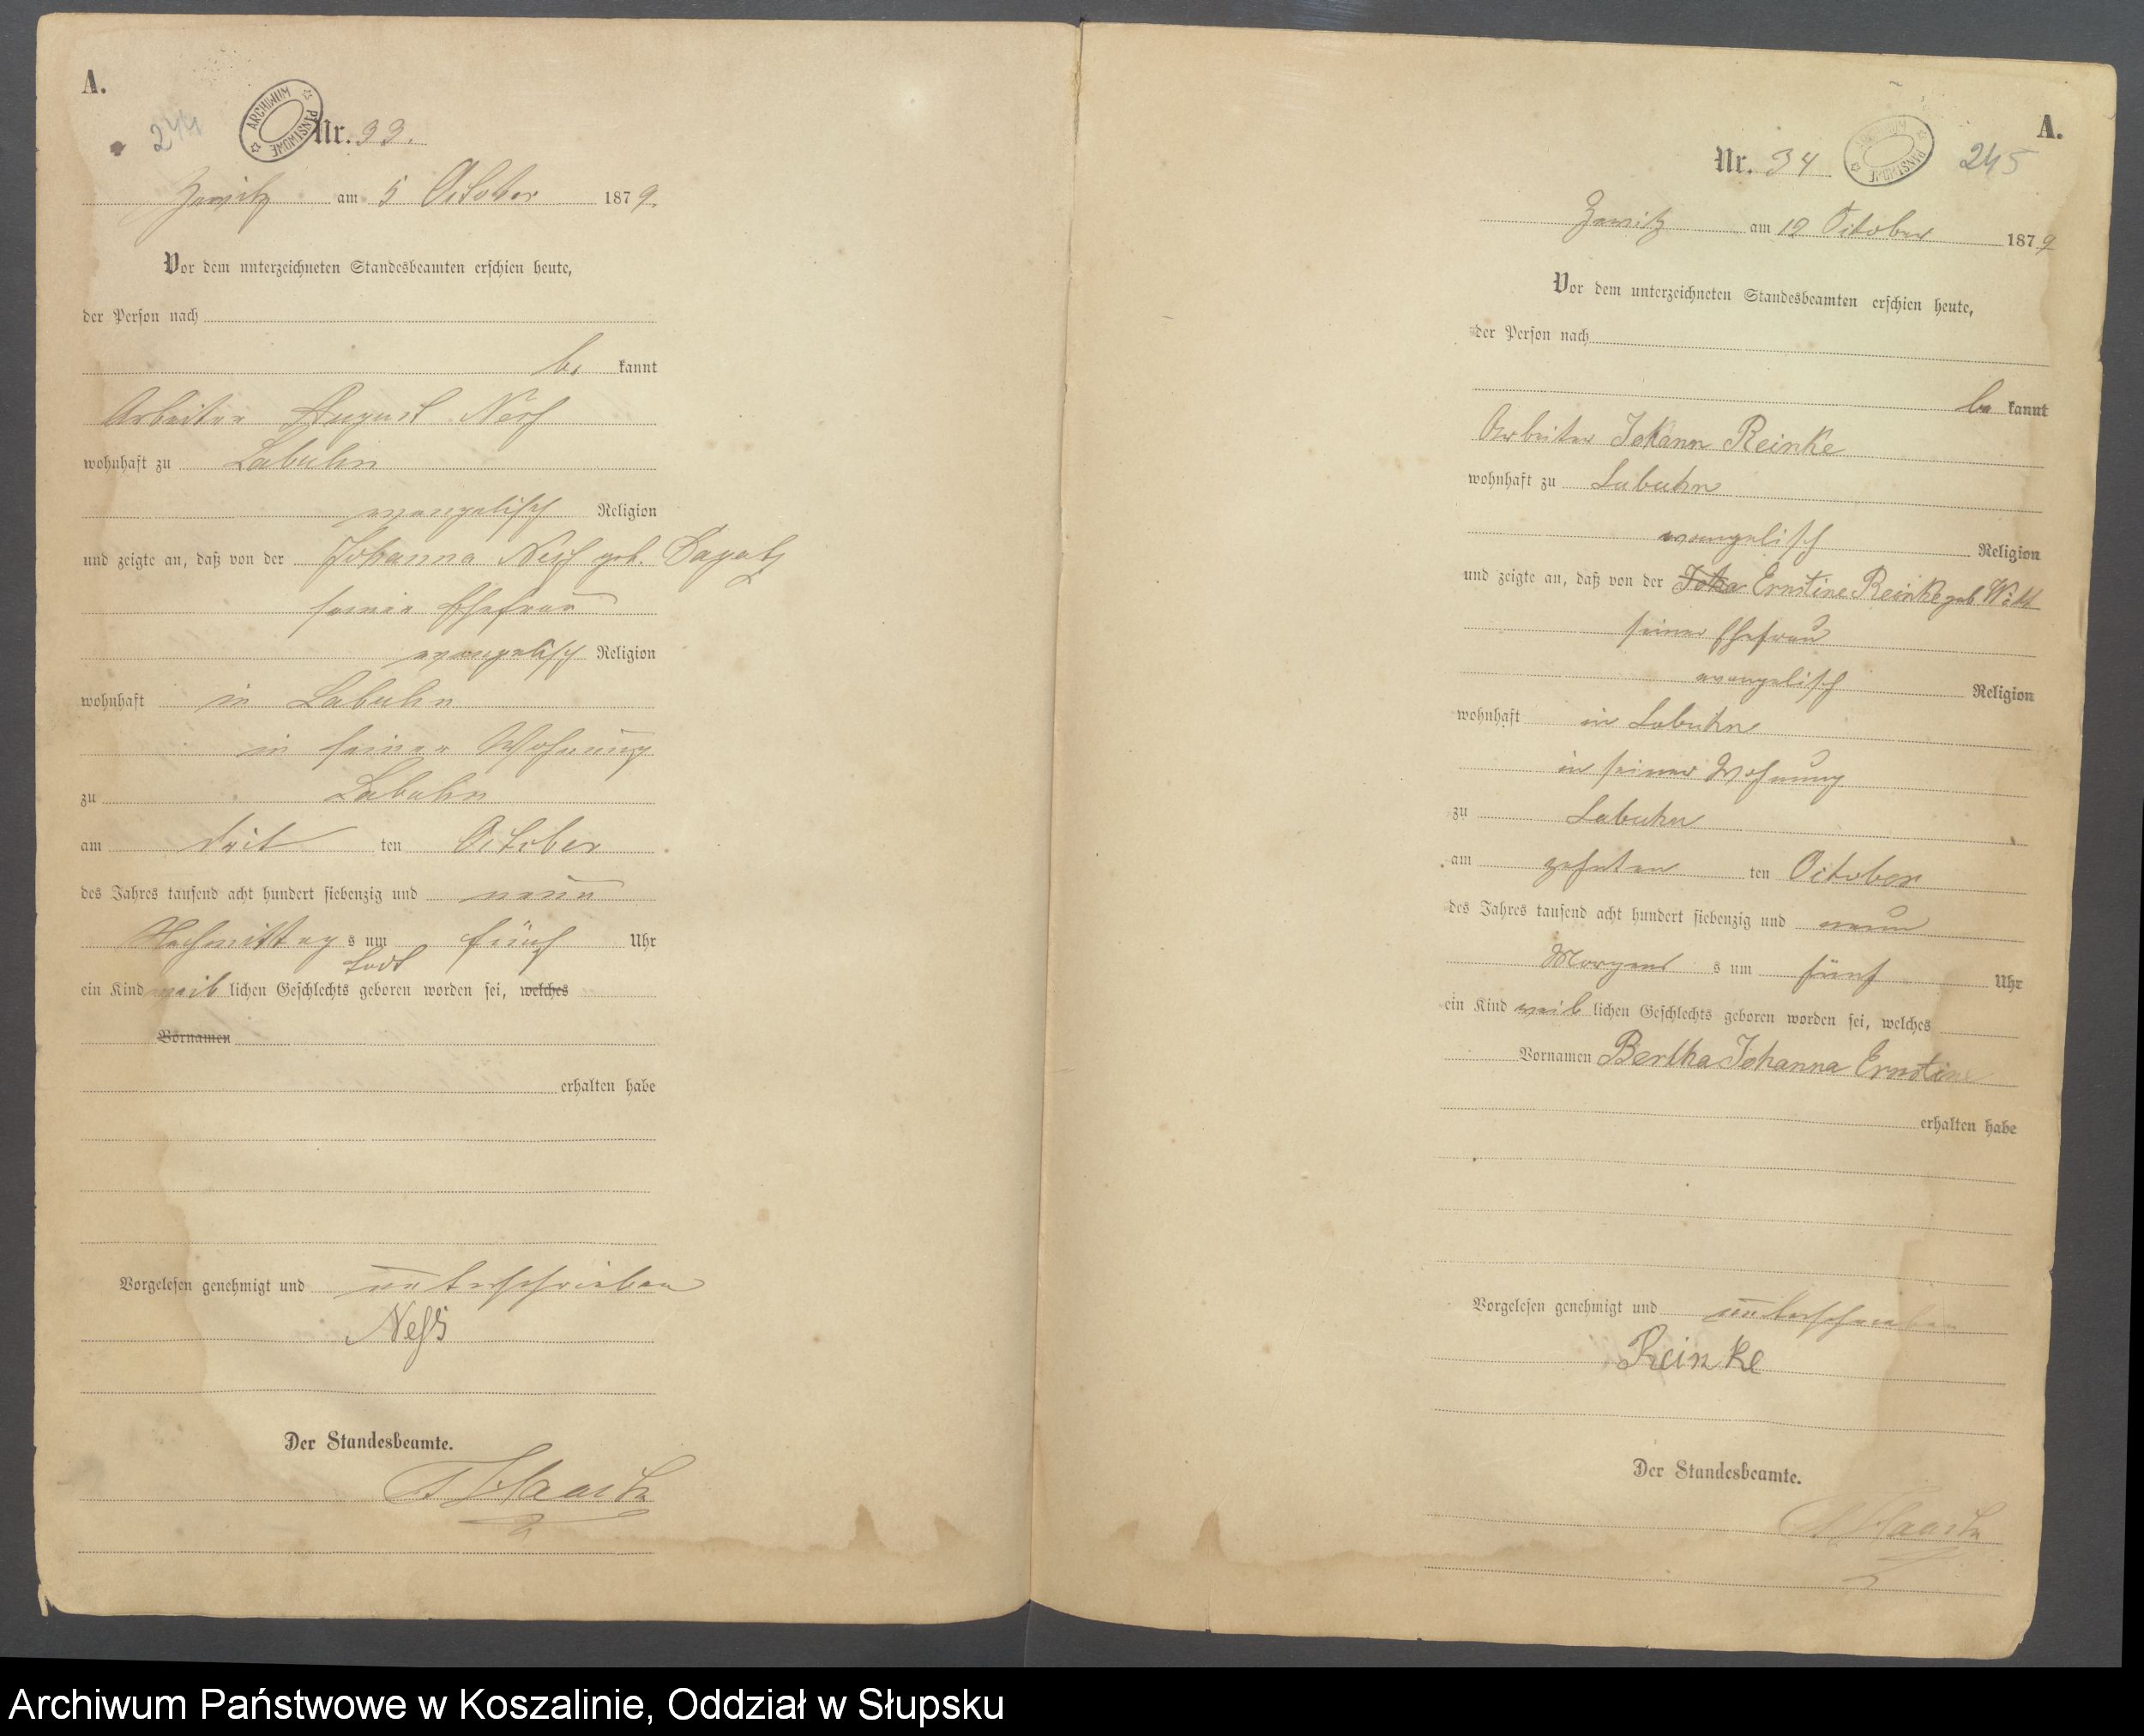 A.
244
ARCHIWUM PAŃSTWOWE
Nr. 33.
Zewitz am 5 October 1879.
Vor dem unterzeichneten Standesbeamten erschien heute,
der Person nach
be kannt
Arbeiter August Neß
wohnhaft zu Labuhn
evangelisch Religion
und zeigte an, daß von der Johanna Neß geb. Papatz
seiner Ehefrau
evangelisch Religion
wohnhaft in Labuhn
in seiner Wohnung
zu Labuhn
am drit ten October
des Jahres tausend acht hundert siebenzig und neun
Nachmittag s um fünf Uhr
todt
ein Kind weib lichen Geschlechts geboren worden sei, welches
Vornamen
erhalten habe
Vorgelesen genehmigt und unterschrieben
Neß
Der Standesbeamte.
A.
Nr. 34
ARCHIWUM PAŃSTWOWE
245
Zewitz am 12 October 1879
Vor dem unterzeichneten Standesbeamten erschien heute,
der Person nach
be kannt
Arbeiter Johann Reinke
wohnhaft zu Labuhn
evangelisch Religion
und zeigte an, daß von der Joha Ernstine Reinke geb Witt
seiner Ehefrau
evangelisch Religion
wohnhaft in Labuhn
in seiner Wohnung
zu Labuhn
am zehnten ten October
des Jahres tausend acht hundert siebenzig und neun
Morgens s um fünf Uhr
ein Kind weib lichen Geschlechts geboren worden sei, welches
Vornamen Bertha Johanna Ernstine
erhalten habe
Vorgelesen genehmigt und unterschrieben
Reinke
Der Standesbeamte.
Archiwum Państwowe w Koszalinie, Oddział w Słupsku